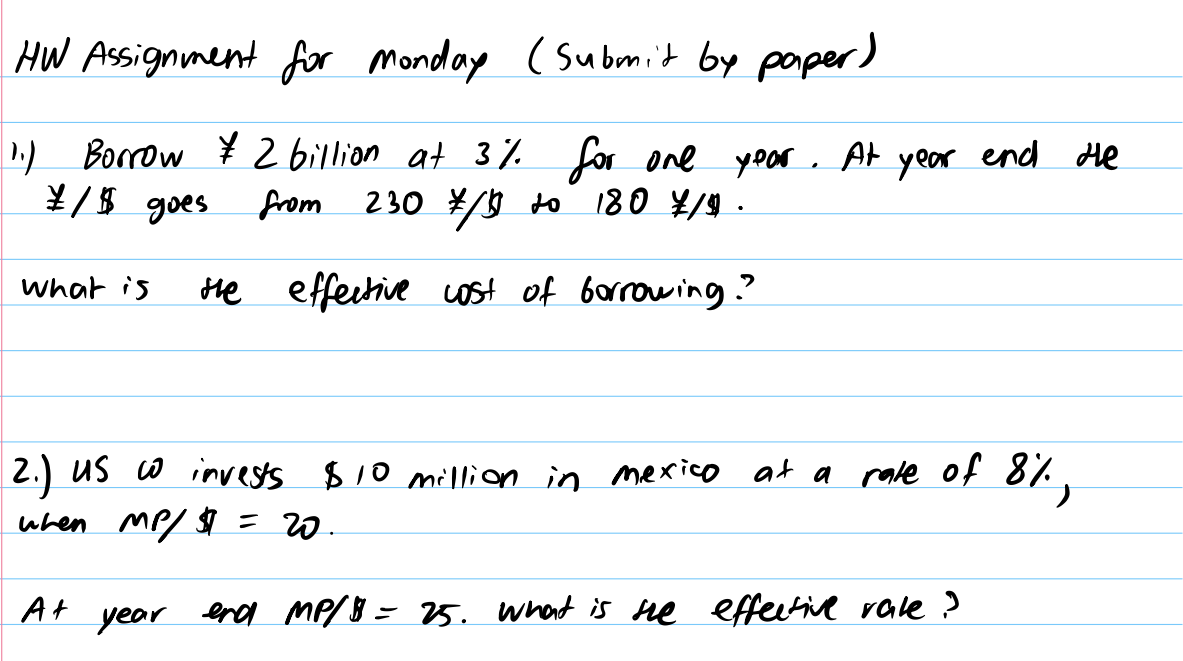 HW Assignment for Monday (Submit by paper)
1.) Borrow ¥ 2 billion at 3% for one year. At year end the
¥/$ goes from 230 ¥/$ to 180 ¥/$.
what is the effective cost of borrowing?
2.) US co invests $10 million in mexico at a rate of 8%,
when MP/$ = 20.
At year end MP/$ = 25. what is the effective rate?